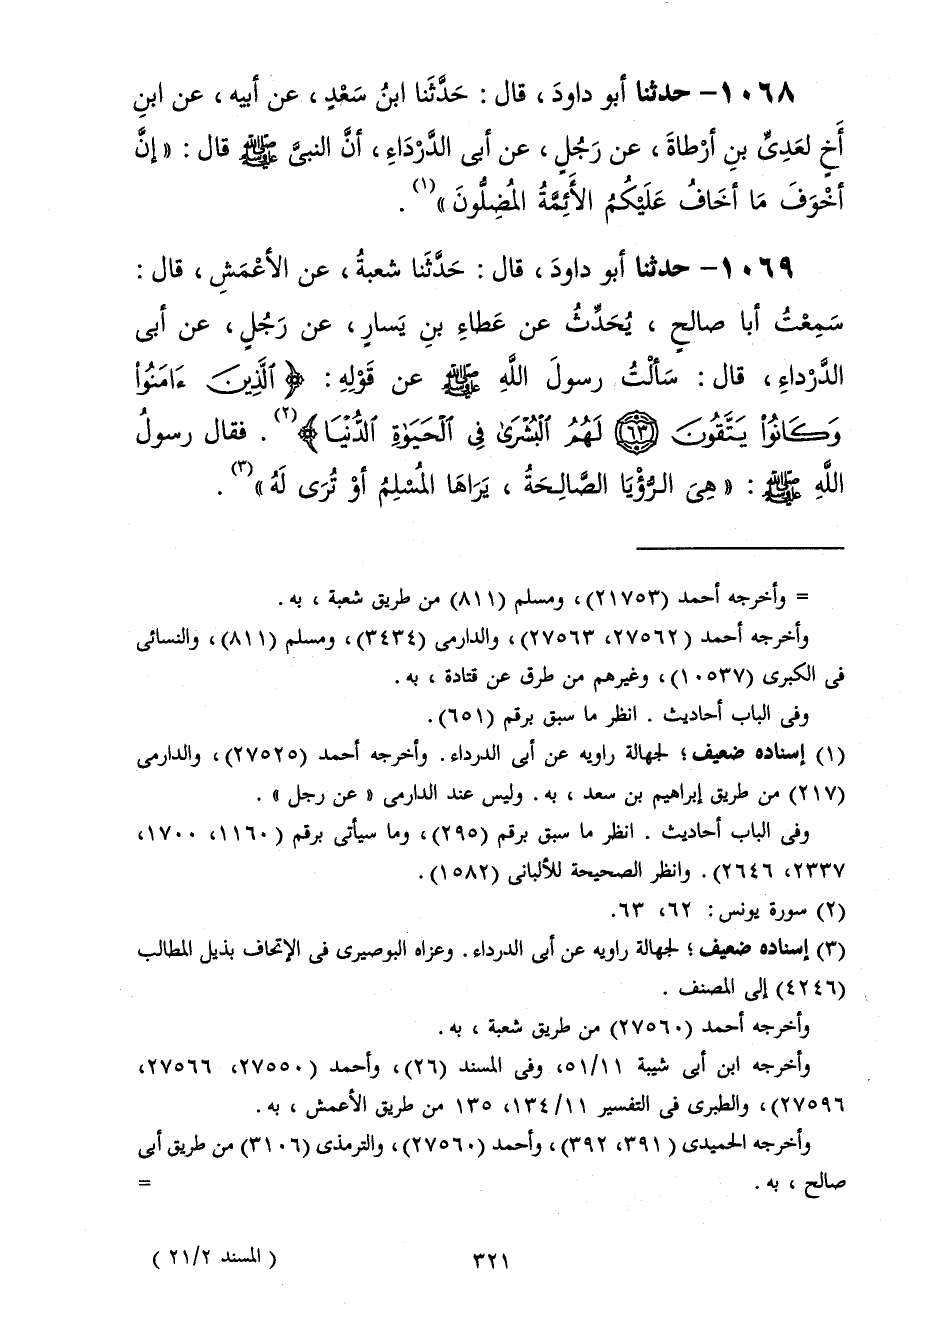 ١٠٦٨- حدثنا أبو داودَ ، قال : حَدَّثَنا ابنُ سَعْدٍ ، عن أبيه ، عن ابنِ
أَخٍ لعَدِىِّ بنِ أرْطاةَ ، عن رَجُلٍ ، عن أبى الدَّرْدَاءِ ، أنَّ النبىَّ ﷺ قال : « إنَّ
أخْوَفَ مَا أخَافُ عَلَيْكُمُ الأَئِمَّةُ المُضِلُّونَ »(١) .
١٠٦٩- حدثنا أبو داودَ ، قال : حَدَّثَنا شعبةُ ، عن الأعْمَشِ ، قال :
سَمِعْتُ أبا صالحٍ ، يُحَدِّثُ عن عَطاءِ بنِ يَسارٍ ، عن رَجُلٍ ، عن أبى
الدَّرْداءِ ، قال : سَألْتُ رسولَ اللَّهِ ﷺ عن قَوْلِهِ : ﴿ ٱلَّذِينَ ءَامَنُواْ
وَكَانُواْ يَتَّقُونَ ٦٣ لَهُمُ ٱلْبُشْرَىٰ فِى ٱلْحَيَوٰةِ ٱلدُّنْيَا ﴾(٢) . فقال رسولُ
اللَّهِ ﷺ : « هِىَ الرُّؤْيَا الصَّالِحَةُ ، يَرَاهَا المُسْلِمُ أوْ تُرَى لَهُ »(٣) .
= وأخرجه أحمد (٢١٧٥٣) ، ومسلم (٨١١) من طريق شعبة ، به .
وأخرجه أحمد (٢٧٥٦٢، ٢٧٥٦٣) ، والدارمى (٣٤٣٤) ، ومسلم (٨١١) ، والنسائى
فى الكبرى (١٠٥٣٧) ، وغيرهم من طرق عن قتادة ، به .
وفى الباب أحاديث . انظر ما سبق برقم (٦٥١) .
(١) إسناده ضعيف ؛ لجهالة راويه عن أبى الدرداء . وأخرجه أحمد (٢٧٥٢٥) ، والدارمى
(٢١٧) من طريق إبراهيم بن سعد ، به . وليس عند الدارمى « عن رجل » .
وفى الباب أحاديث . انظر ما سبق برقم (٢٩٥) ، وما سيأتى برقم (١١٦٠، ١٧٠٠،
٢٣٣٧، ٢٦٤٦) . وانظر الصحيحة للألبانى (١٥٨٢) .
(٢) سورة يونس : ٦٢، ٦٣.
(٣) إسناده ضعيف ؛ لجهالة راويه عن أبى الدرداء . وعزاه البوصيرى فى الإتحاف بذيل المطالب
(٤٢٤٦) إلى المصنف .
وأخرجه أحمد (٢٧٥٦٠) من طريق شعبة ، به .
وأخرجه ابن أبى شيبة ٥١/١١، وفى المسند (٢٦) ، وأحمد (٢٧٥٥٠، ٢٧٥٦٦،
٢٧٥٩٦) ، والطبرى فى التفسير ١٣٤/١١، ١٣٥ من طريق الأعمش ، به .
وأخرجه الحميدى (٣٩١، ٣٩٢) ، وأحمد (٢٧٥٦٠) ، والترمذى (٣١٠٦) من طريق أبى
صالح ، به . =
٣٢١ ( المسند ٢١/٢ )